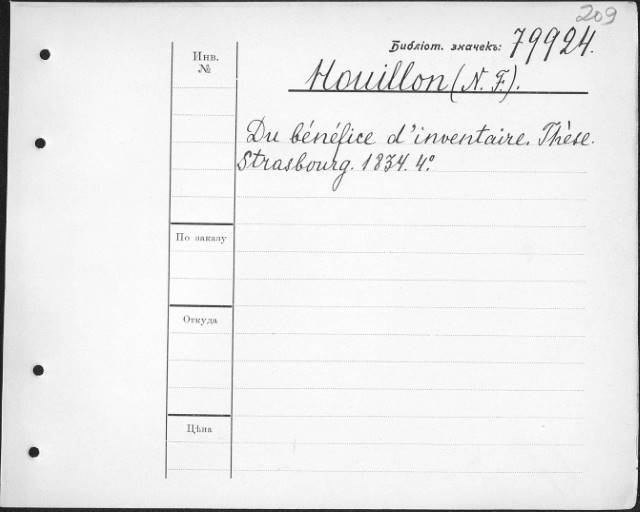 209
Библіот. значекъ: 79924.
Инв. №
Houillon (N. F.).
Du bénéfice d'inventaire. Thèse.
Strasbourg. 1834. 4º
По заказу
Откуда
Цѣна